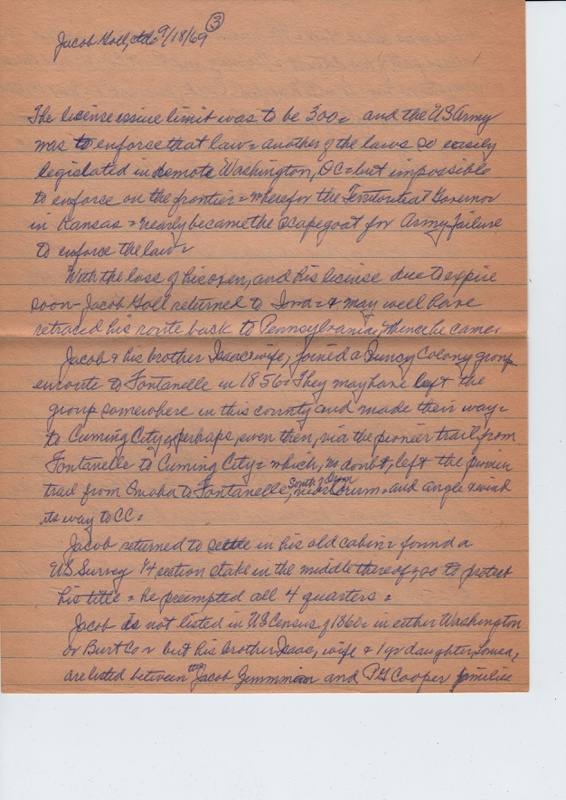 Jacob Goll, etal 9/18/69 ③
The license issue limit was to be 300 = and the US Army
was to enforce that law = another of the laws so easily
legislated in remote Washington, DC = but impossible
to enforce on the frontier = wherefor the Territorial Governor
in Kansas = nearly became the scapegoat for Army failure
to enforce the law =
With the loss of his oxen, and his license due to expire
soon - Jacob Goll returned to Iowa = & may well have
retraced his route back to Pennsylvania, thence he came.
Jacob & his brother Isaac wife, joined a Quincy Colony group
enroute to Fontanelle in 1856 = They may have left the
group somewhere in this county and made their way =
to Cuming City, perhaps, even then, via the pioneer trail from
Fontanelle to Cuming City = which, no doubt, left the pioneer
trail from Omaha to Fontanelle, South of Orum and angle & wind
its way to CC =
Jacob returned to settle in his old cabin = found a
US Survey 1/4 section stake in the middle thereof, so to protect
his title = he preempted all 4 quarters =
Jacob is not listed in US Census of 1860 = in either Washington
or Burt Co = but his brother Isaac, wife & 1 yr daughter,
are listed between the Jacob and PG Cooper families